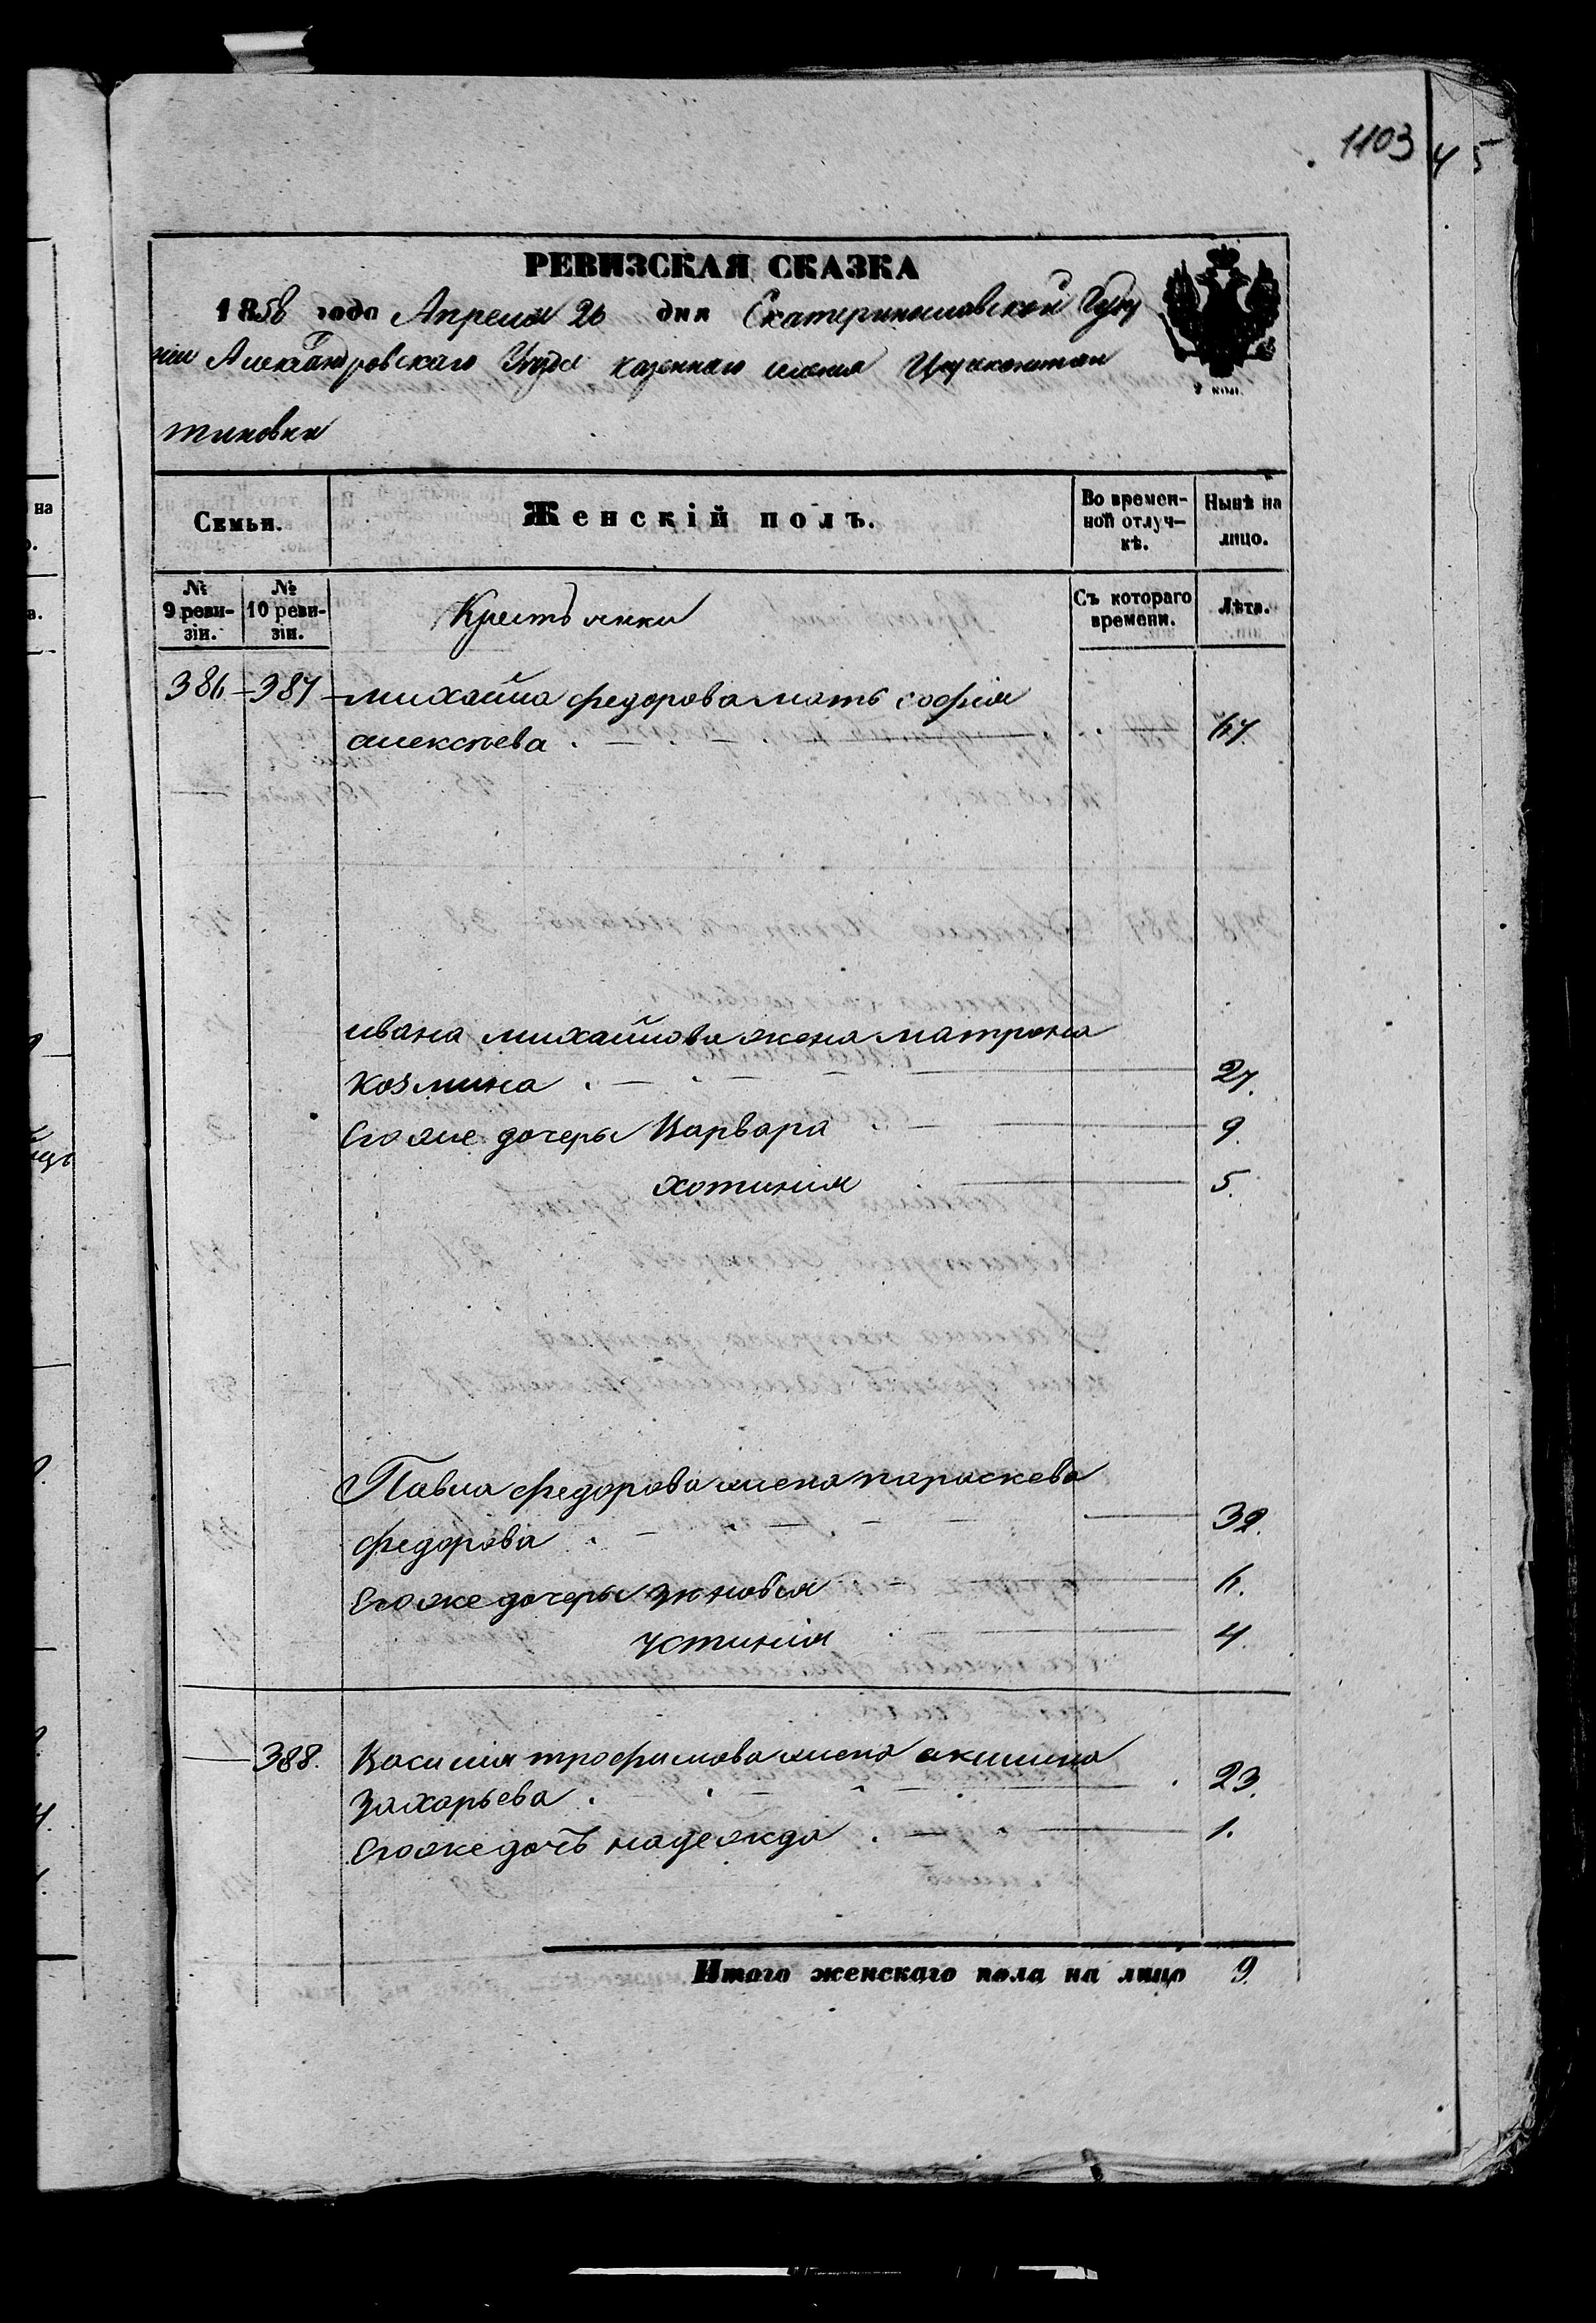 1103 45
РЕВИЗСКАЯ СКАЗКА
1858 года Апреля 26 дня Екатеринославской Губер
ніи Александровскаго Уезда казеннаго селенія
тиновки
Семьи. Женскій полъ. Во времен-ной отлуч-кѣ. Нынѣ на лицо.
№ 9 реви-зіи. № 10 реви-зіи. Крестьянки Съ котораго времени. Лѣта.
386 387 михайла федорова мать софія
алексѣева
ивана михайлова жена матрона
козмина 27.
Его же дочеры Варвара 9.
хотинія 5.
Павла федорова жена параскева
федорова 39.
Его же дочеры зиновья
устинія 4.
388. Василия трофимова жена акилина
захарьева 23.
Его же дочь надежда 1.
Итого женскаго пола на лицо 9.